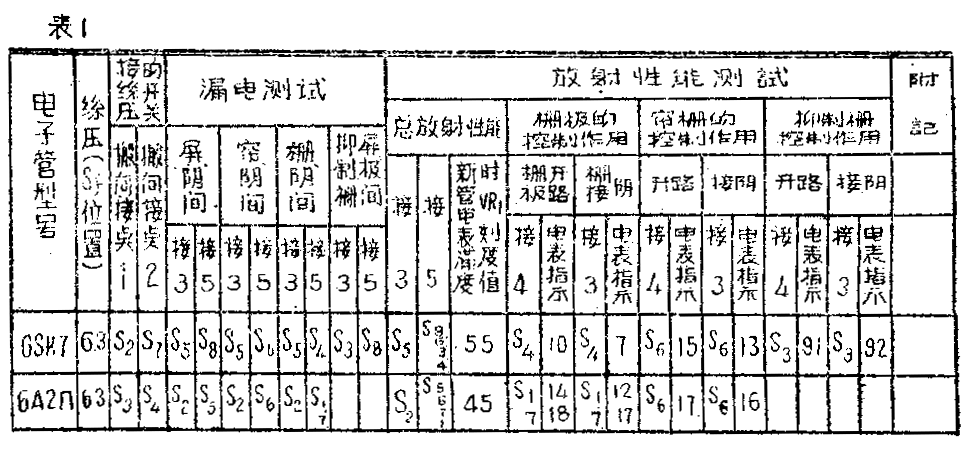 表1
电子管型号 丝压(S1位置) 接丝压的开关 漏电测试 放射性能测試 附記
搬向接点1 搬向接点2 屏阴间 帘阴间 栅阴间 抑制栅屏极间 总放射性能 栅极的控制作用 帘栅的控制作用 抑制栅控制作用
接3 接5 接3 接5 接3 接5 接3 接5 接3 接5 新管电表满度时VR1刻度值 栅极开路 栅接阴 开路 接阴 开路 接阴
接4 电表指示 接3 电表指示 接4 电表指示 接3 电表指示 接4 电表指示 接3 电表指示
6SK7 6.3 S2 S7 S5 S8 S5 S6 S5 S4 S3 S8 S5 55 S4 10 S4 7 S6 15 S6 13 S3 91 S3 92
6А2П 6.3 S3 S4 S2 S5 S2 S6 S2 S1 7 S2 45 S1 7 14 18 S1 7 12 17 S6 17 S6 16